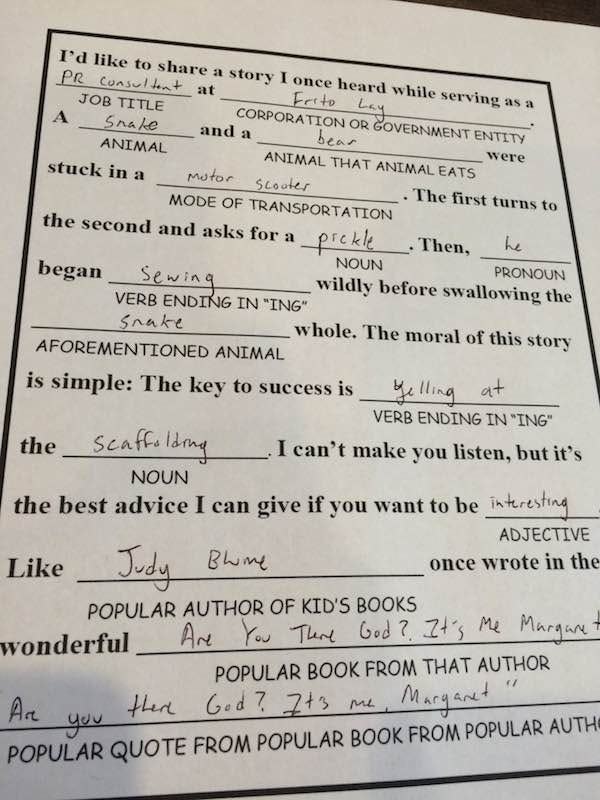 I'd like to share a story I once heard while serving as a
PR consultant at Frito Lay.
JOB TITLE CORPORATION OR GOVERNMENT ENTITY
A Snake and a bear were
ANIMAL ANIMAL THAT ANIMAL EATS
stuck in a motor scooter. The first turns to
MODE OF TRANSPORTATION
the second and asks for a pickle. Then, he
NOUN PRONOUN
began Sewing wildly before swallowing the
VERB ENDING IN "ING"
Snake whole. The moral of this story
AFOREMENTIONED ANIMAL
is simple: The key to success is Yelling at
VERB ENDING IN "ING"
the Scaffolding. I can't make you listen, but it's
NOUN
the best advice I can give if you want to be interesting.
ADJECTIVE
Like Judy Blume once wrote in the
POPULAR AUTHOR OF KID'S BOOKS
wonderful Are You There God? It's Me Margaret
POPULAR BOOK FROM THAT AUTHOR
"Are you there God? It's me, Margaret"
POPULAR QUOTE FROM POPULAR BOOK FROM POPULAR AUTH